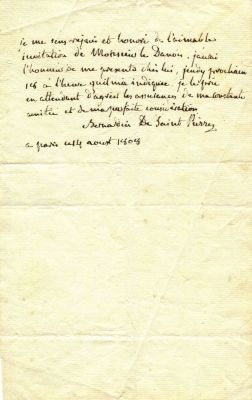 je me sens rejouis et honoré de l'aimable
invitation de Monsieur le Danou. j'aurai
l'honneur de me presenter chez lui, jeudy prochain
18 a l'heure qu'il m'a indiquée. je le prie
en attendant d'agréer les assurances de ma constante
amitié et de ma parfaite consideration
Bernardin De Saint Pierre
a paris ce 14 aout 1808